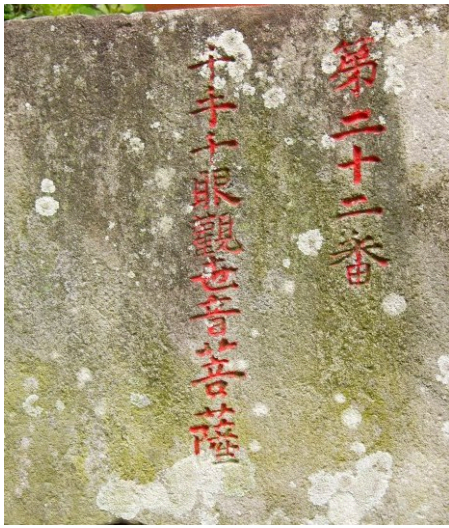 第二十二番
千手千眼觀世音菩薩